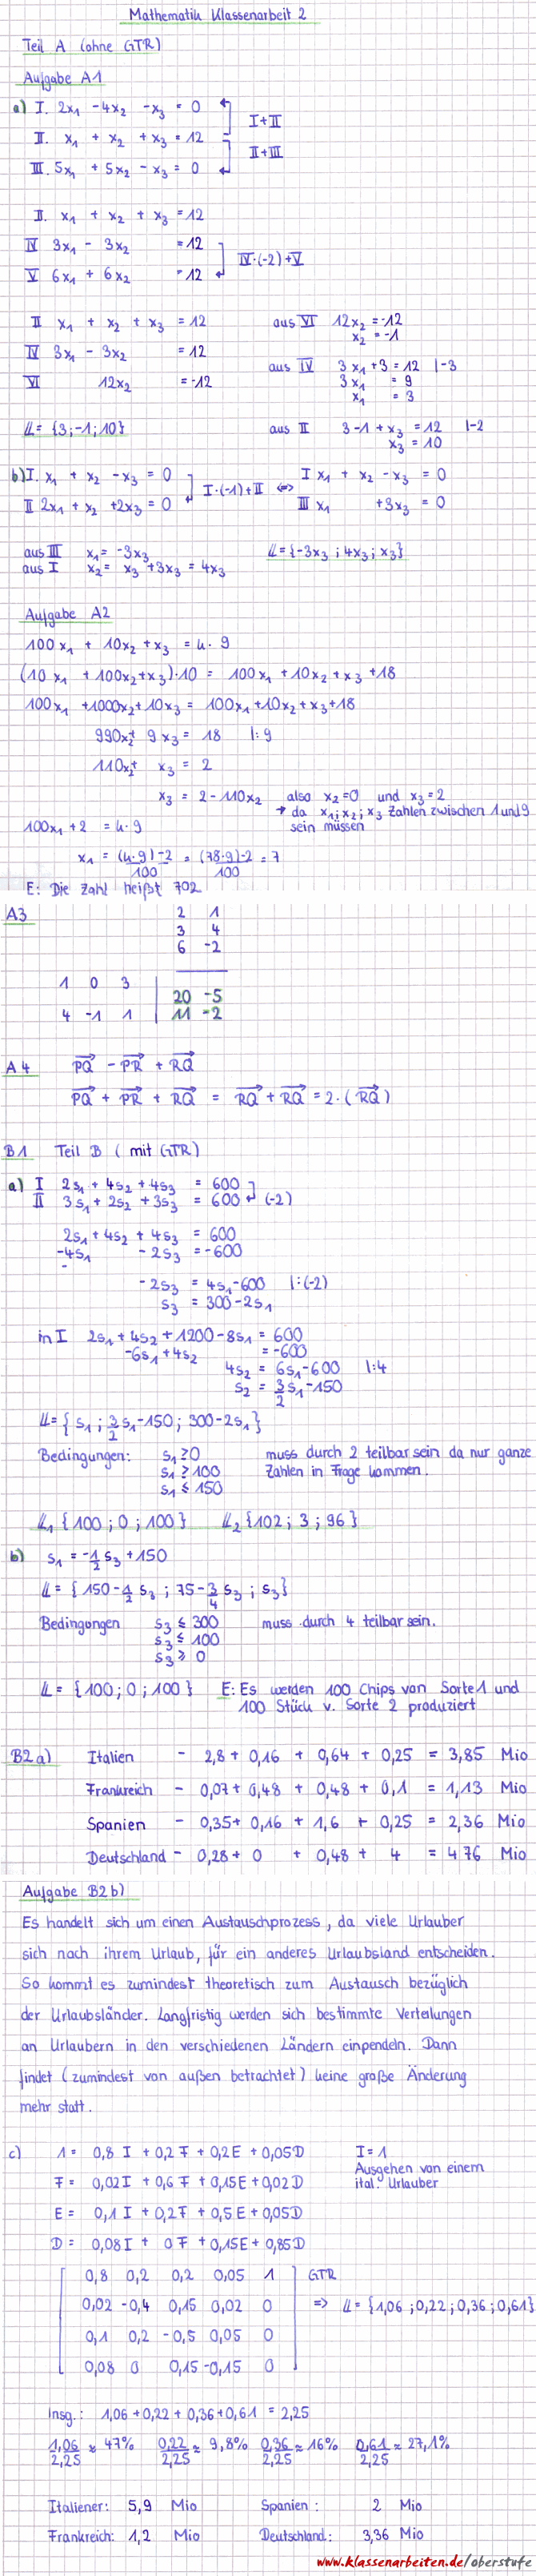 Mathematik Klassenarbeit 2
Teil A (ohne GTR)
Aufgabe A1
a) I. 2x₁ - 4x₂ - x₃ = 0
I+II
II. x₁ + x₂ + x₃ = 12
II+III
III. 5x₁ + 5x₂ - x₃ = 0
II. x₁ + x₂ + x₃ = 12
IV 3x₁ - 3x₂ = 12
IV·(-2)+V
V 6x₁ + 6x₂ = 12
II x₁ + x₂ + x₃ = 12 aus VI 12x₂ = -12
x₂ = -1
IV 3x₁ - 3x₂ = 12
aus IV 3x₁+3 = 12 |-3
VI 12x₂ = -12 3x₁ = 9
x₁ = 3
𝕃 = {3;-1;10} aus II 3-1+x₃ = 12 |-2
x₃ = 10
b) I. x₁ + x₂ - x₃ = 0 I x₁ + x₂ - x₃ = 0
I·(-1)+II ⇔
II 2x₁ + x₂ + 2x₃ = 0 III x₁ + 3x₃ = 0
aus III x₁ = -3x₃ 𝕃 = {-3x₃ ; 4x₃ ; x₃}
aus I x₂ = x₃ + 3x₃ = 4x₃
Aufgabe A2
100x₁ + 10x₂ + x₃ = k·9
(10x₁ + 100x₂ + x₃)·10 = 100x₁ + 10x₂ + x₃ + 18
100x₁ + 1000x₂ + 10x₃ = 100x₁ + 10x₂ + x₃ + 18
990x₂ + 9x₃ = 18 |:9
110x₂ + x₃ = 2
x₃ = 2 - 110x₂ also x₂=0 und x₃=2
→ da x₁; x₂; x₃ Zahlen zwischen 1 und 9
100x₁ + 2 = k·9 sein müssen
x₁ = (k·9)-2/100 = (78·9)-2/100 = 7
E: Die Zahl heißt 702
A3
2 1
3 4
6 -2
1 0 3 20 -5
4 -1 1 11 -2
A4 PQ⃗ - PR⃗ + RQ⃗
PQ⃗ + PR⃗ + RQ⃗ = RQ⃗ + RQ⃗ = 2·(RQ⃗)
B1 Teil B (mit GTR)
a) I 2s₁ + 4s₂ + 4s₃ = 600
II 3s₁ + 2s₂ + 3s₃ = 600 (-2)
2s₁ + 4s₂ + 4s₃ = 600
-4s₁ - 2s₃ = -600
-2s₃ = 4s₁-600 |:(-2)
s₃ = 300-2s₁
in I 2s₁ + 4s₂ + 1200 - 8s₁ = 600
-6s₁ + 4s₂ = -600
4s₂ = 6s₁-600 |:4
s₂ = 3/2 s₁-150
𝕃 = {s₁ ; 3/2 s₁-150 ; 300-2s₁}
Bedingungen: s₁ ≥ 0 muss durch 2 teilbar sein da nur ganze
s₁ ≥ 100 Zahlen in Frage kommen.
s₁ ≤ 150
𝕃₁ {100 ; 0 ; 100} 𝕃₂ {102 ; 3 ; 96}
b) s₁ = -1/2 s₃ + 150
𝕃 = {150-1/2 s₃ ; 75-3/4 s₃ ; s₃}
Bedingungen s₃ ≤ 300 muss durch 4 teilbar sein.
s₃ ≤ 100
s₃ ≥ 0
𝕃 = {100 ; 0 ; 100} E: Es werden 100 Chips von Sorte 1 und
100 Stück v. Sorte 2 produziert
B2 a) Italien - 2,8 + 0,16 + 0,64 + 0,25 = 3,85 Mio
Frankreich - 0,07 + 0,48 + 0,48 + 0,1 = 1,13 Mio
Spanien - 0,35 + 0,16 + 1,6 + 0,25 = 2,36 Mio
Deutschland - 0,28 + 0 + 0,48 + 4 = 4 76 Mio
Aufgabe B2 b)
Es handelt sich um einen Austauschprozess, da viele Urlauber
sich nach ihrem Urlaub, für ein anderes Urlaubsland entscheiden.
So kommt es zumindest theoretisch zum Austausch bezüglich
der Urlaubsländer. Langfristig werden sich bestimmte Verteilungen
an Urlaubern in den verschiedenen Ländern einpendeln. Dann
findet (zumindest von außen betrachtet) keine große Änderung
mehr statt.
c) 1 = 0,8 I + 0,2 F + 0,2 E + 0,05 D I = 1
Ausgehen von einem
F = 0,02 I + 0,6 F + 0,15 E + 0,02 D ital. Urlauber
E = 0,1 I + 0,2 F + 0,5 E + 0,05 D
D = 0,08 I + 0 F + 0,15 E + 0,85 D
0,8 0,2 0,2 0,05 1 GTR
0,02 -0,4 0,15 0,02 0 => 𝕃 = {1,06 ; 0,22 ; 0,36 ; 0,61}
0,1 0,2 -0,5 0,05 0
0,08 0 0,15 -0,15 0
Insg.: 1,06 + 0,22 + 0,36 + 0,61 = 2,25
1,06/2,25 ≈ 47% 0,22/2,25 ≈ 9,8% 0,36/2,25 ≈ 16% 0,61/2,25 ≈ 27,1%
Italiener: 5,9 Mio Spanien: 2 Mio
Frankreich: 1,2 Mio Deutschland: 3,36 Mio
www.klassenarbeiten.de/oberstufe